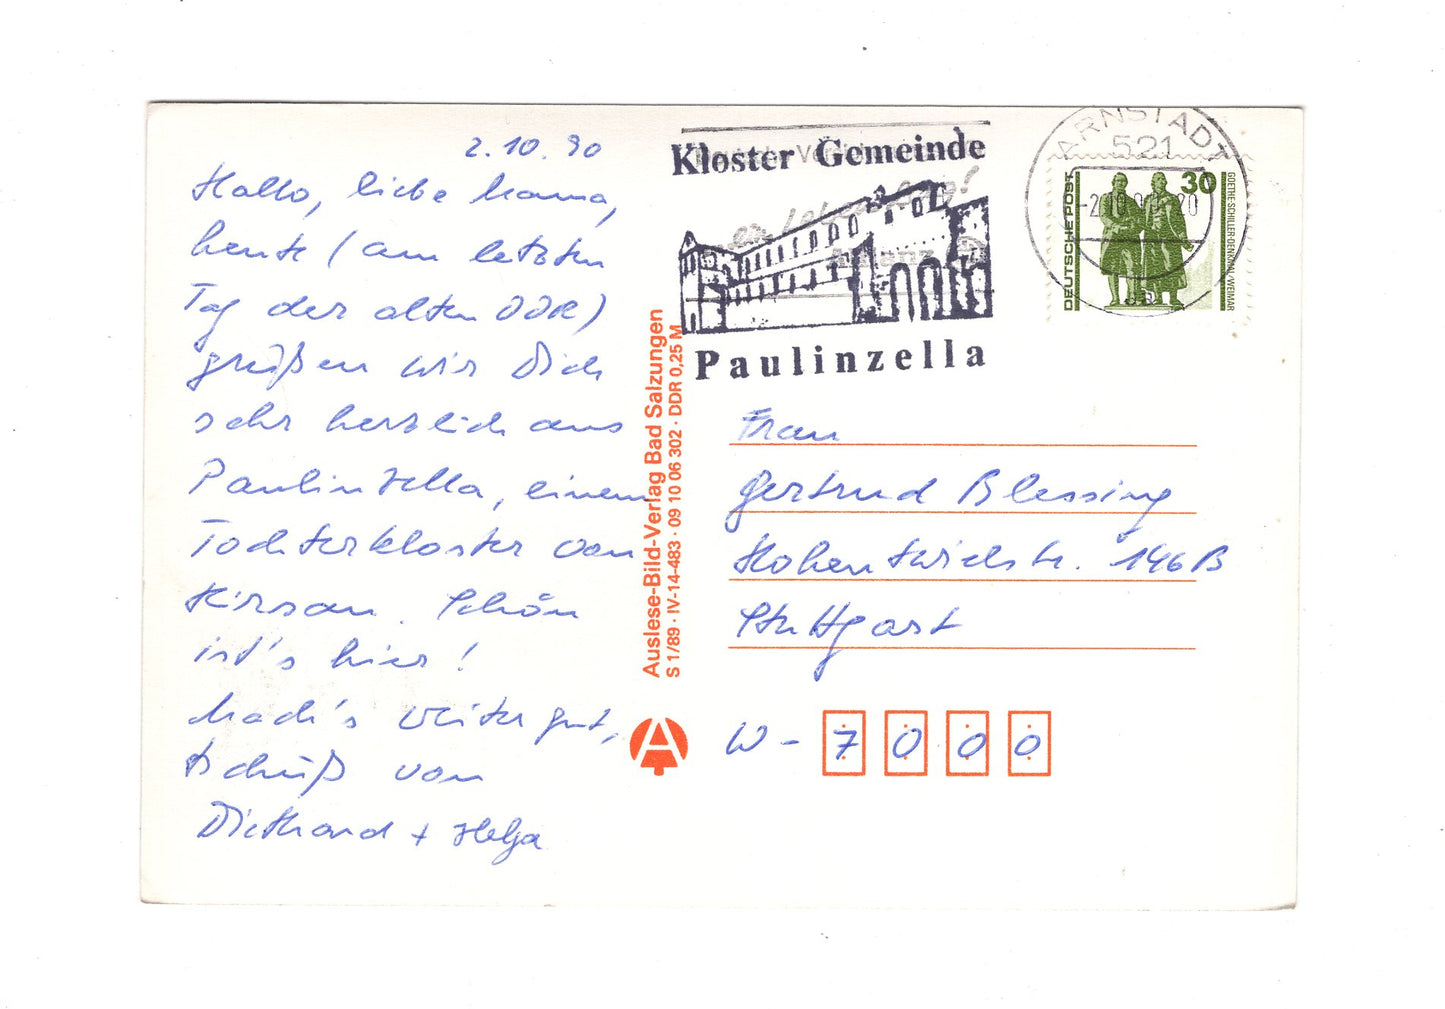 2.10.90
Hallo, liebe Mama,
heute (am letzten
Tag der alten DDR)
grüßen wir Dich
sehr herzlich aus
Paulinzella, einem
Tochterkloster von
Hirsau. Schön
ist's hier!
Mach's weiter gut,
tschüß von
Diethard + Helga
Auslese-Bild-Verlag Bad Salzungen
S 1/89 · IV-14-483 · 09 10 06 302 · DDR 0,25 M
Kloster Gemeinde
Paulinzella
ARNSTADT
521
30
DEUTSCHE POST
GOETHE-SCHILLER-DENKMAL/WEIMAR
Frau
Gertrud Blessing
Hohentwielstr. 146B
Stuttgart
W - 7000